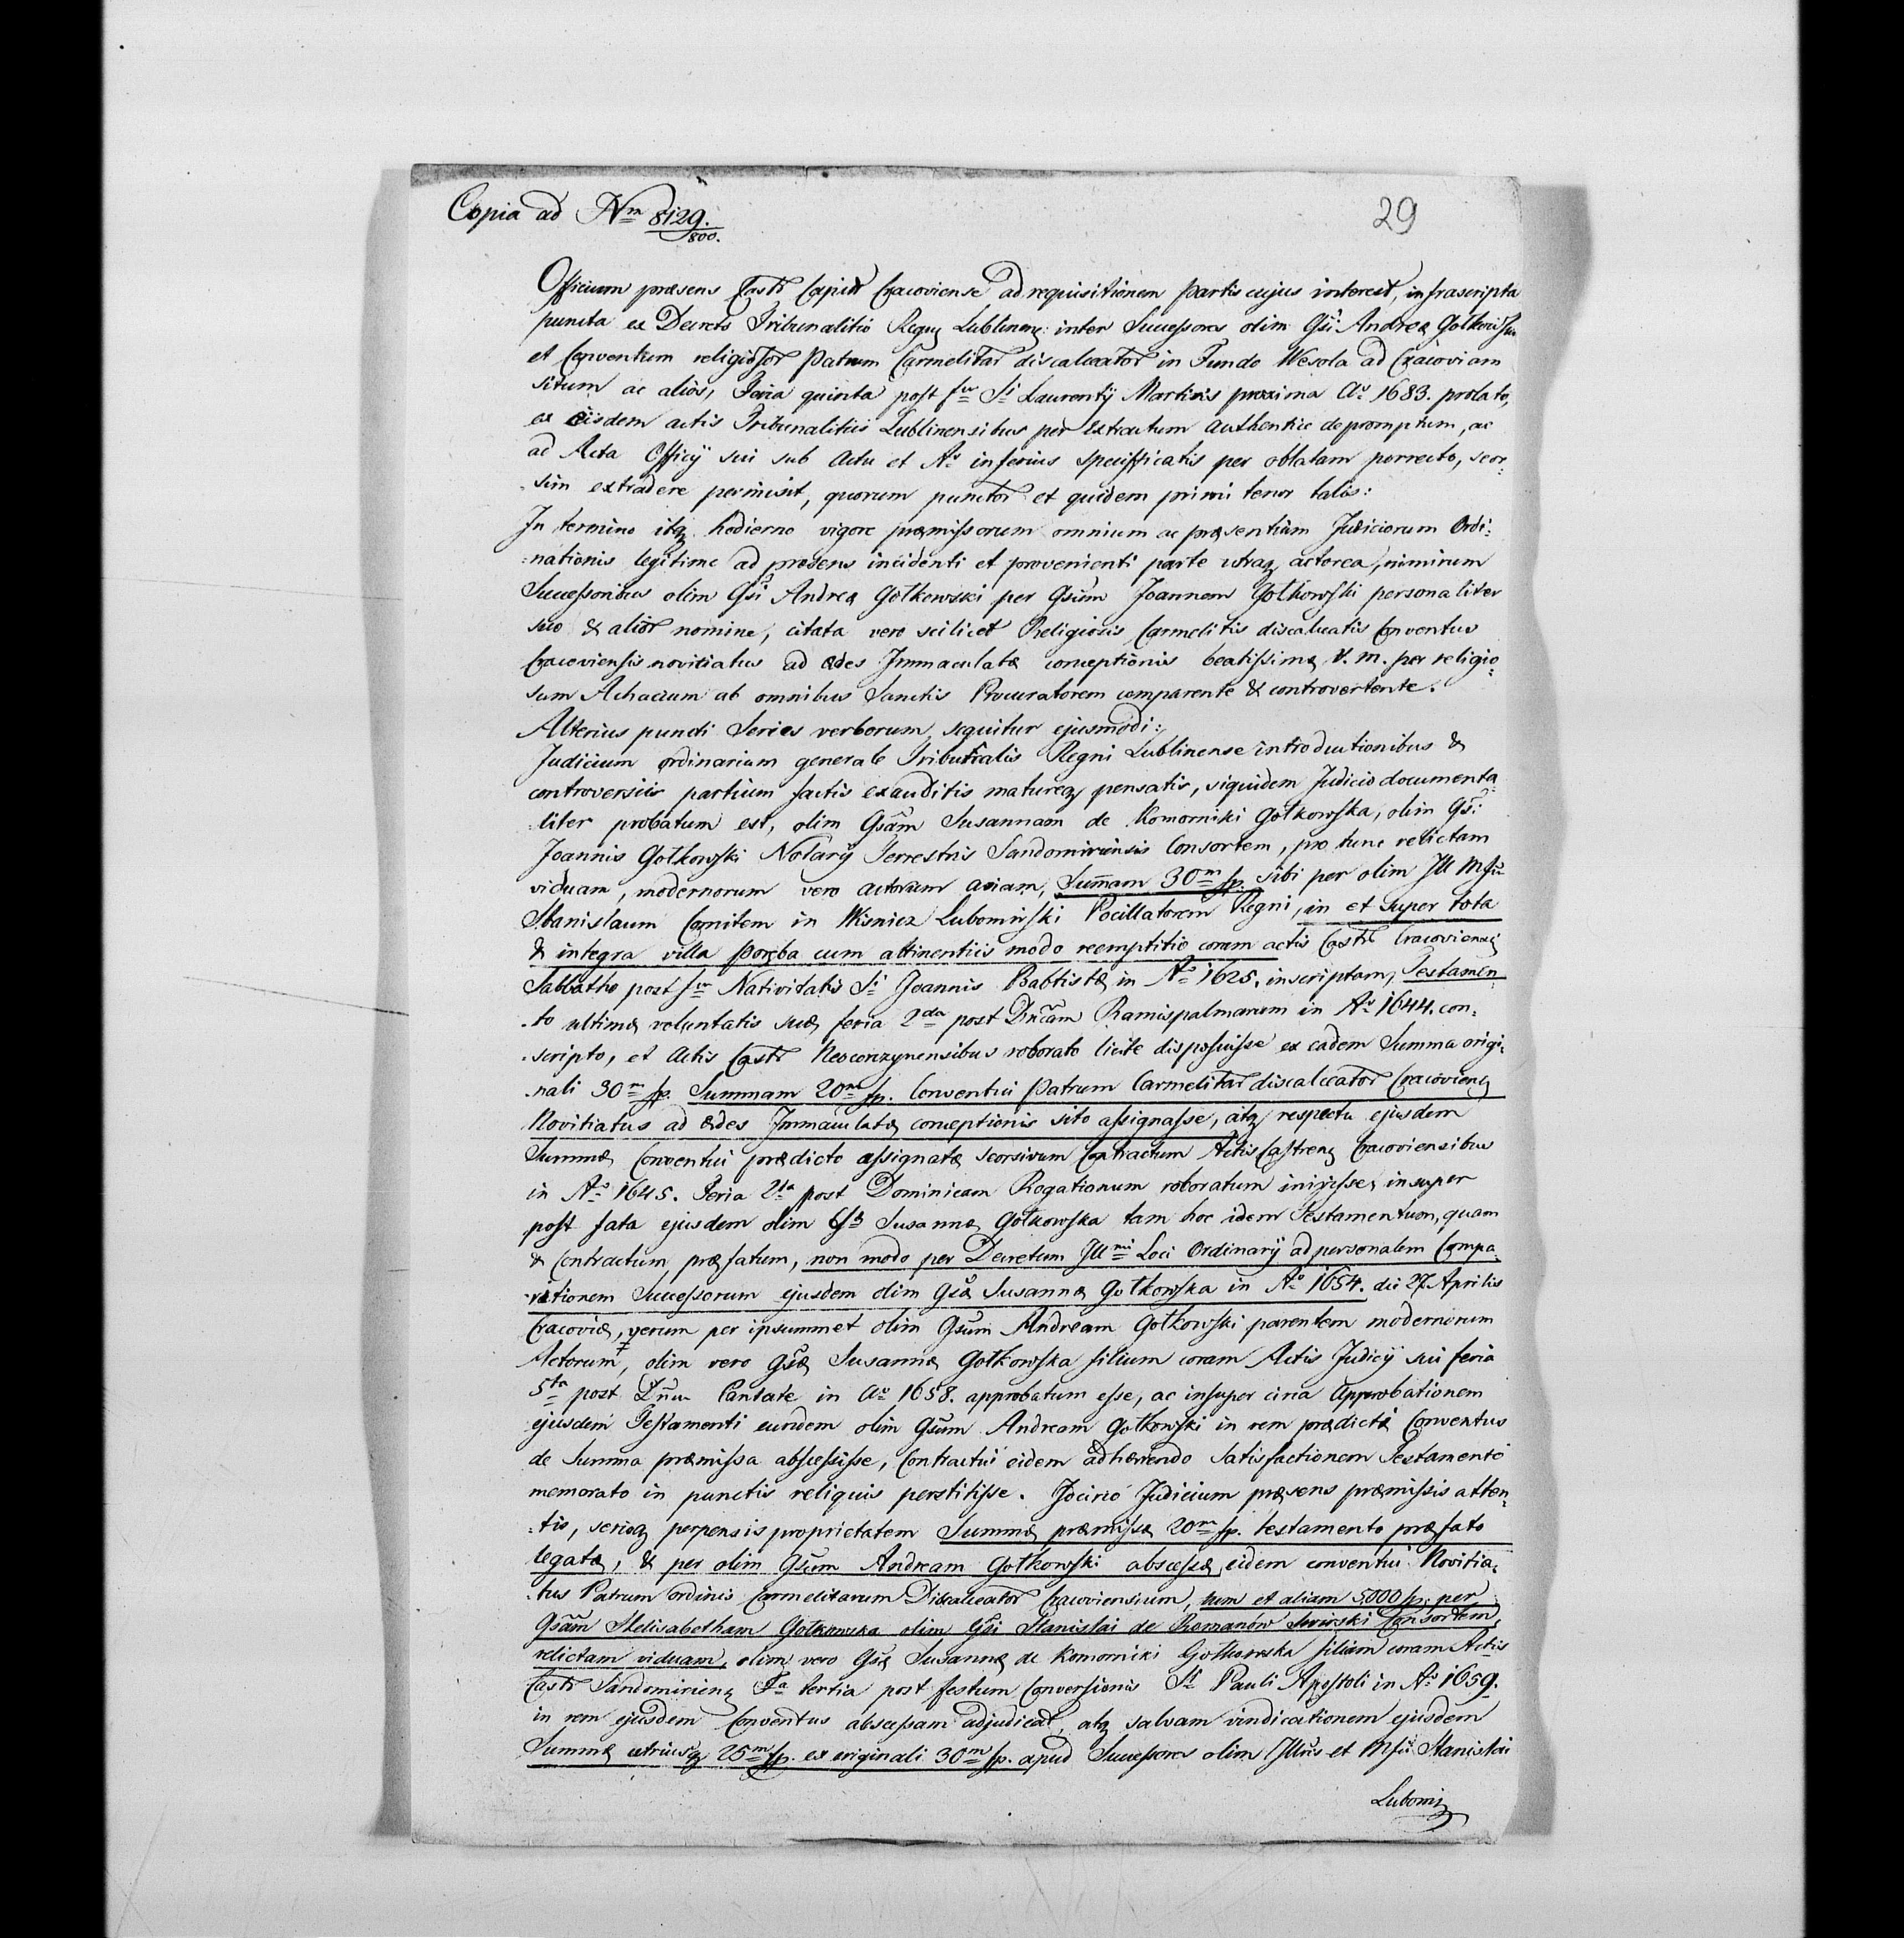 Copia ad Nm 8129./800.
29
Officium præsens Castr Capitt Cracoviense ad requisitionem Partis cujus interest, infrascripta
puncta ex Decreto Tribunalitio Regny Lublinens: inter Successores olim Gsi: Andreæ Gołkowski
et Conventum religiosor Patrum Carmelitar discalceator in Fundo Wesoła ad Cracoviam
situm ac alios, Feria quinta post fm Si Laurentij Martiris proxima Ao 1683. prolato,
ex eisdem actis Tribunalitiis Lublinensibus per Extractum authentice depromptum, ac
ad Acta Officij sui sub Actu et Ao inferius specifficatis per oblatam porrecto, seor-
sim extradere permisit, quorum punctor et quidem primi tenor talis:
In termino itaq hodierno vigore præmissorum omnium ac præsentium Judiciorum Ordi-
nationis legitime ad præsens incidenti et provenienti parte utraq actorea, nimirum
Successoribus olim Gsi Andreæ Gołkowski per Gsum Joannem Gołkowski personaliter
suo & alior nomine, citata vero scilicet Religiosis Carmelitis discalceatis Conventus
Cracoviensis novitiatus ad ædes Immaculatæ conceptionis beatissimæ V. M. per religio-
sum Achacium ab omnibus Sanctis Procuratorem comparente & controvertente.
Alterius puncti Series verborum sequitur ejusmodi:
Judicium ordinarium generale Tribunalis Regni Lublinense introductionibus &
controversiis partium factis exauditis matureq pensatis, siquidem Judicio documenta-
liter probatum est, olim Gsam Susannam de Komorniki Gołkowska, olim Gsi:
Joannis Gołkowski Notarij Terrestris Sandomiriensis Consortem, pro tunc relictam
viduam, modernorum vero actorum aviam, Summam 30m fp. sibi per olim Ill Mfcu
Stanislaum Comitem in Wisnicz Lubomirski Pocillatorem Regni, in et super tota
& integra villa Poręba cum attinentiis modo reemptitio coram actis Castr Cracoviens
Sabbatho post fm Nativitatis Si Joannis Babtistæ in Ao 1625. inscriptam, Testamen-
to ultimæ voluntatis suæ feria 2da post Dncam Ramispalmarum in Ao 1644. con-
scripto, et Actis Castr Neocorczynensibus roborato licite disposuisse ex eadem Summa origi-
nali 30m fp. Summam 20m fp. Conventui Patrum Carmelitar discalceator Cracoviens
Novitiatus ad ædes Immaculatæ conceptionis sito assignasse, atq respectu ejusdem
Summæ Conventui prædicto assignatæ seorsivum Contractum Actis Castrens Cracoviensibus
in Ao 1645. Feria 2da post Dominicam Rogationum roboratum inijsse, insuper
post fata ejusdem olim Gsæ Susannæ Gołkowska tam hoc idem Testamentum, quam
& Contractum præfatum, non modo per Decretum Illmi Loci Ordinarij ad personalem Compa-
ritionem Successorum ejusdem olim Gsæ Susannæ Gołkowska in Ao 1654. die 27 Aprilis
Cracoviæ, verum per ipsummet olim Gsum Andream Gołkowski parentem modernorum
Actorum, olim vero Gsæ Susannæ Gołkowska filium coram Actis Judicij sui feria
5ta post Dnm Cantate in Ao 1658. approbatum esse, ac insuper circa approbationem
ejusdem Testamenti eundem olim Gsum Andream Gołkowski in rem prædicti Conventus
de Summa præmissa abscessisse, Contractui eidem adhærendo satisfactionem Testamento
memorato in punctis reliquis perstitisse. Idcirco Judicium præsens præmissis atten-
tis, serioq perpensis proprietatem Summæ præmissæ 20m fp. testamento præfato
legatæ, & per olim Gsum Andream Gołkowski abscessæ, eidem conventui Novitia-
tus Patrum ordinis Carmelitarum Discalceator Cracoviensium, tum et aliam 5000 fp. per
Gsam Helisabetham Gołkowska olim Gsi Stanislai de Romanów Consortem,
relictam viduam, olim vero Gsæ Susannæ de Komorniki Gołkowska filiam coram Actis
Castr Sandomiriens Fa tertia post festum Conversionis Sti Pauli Apostoli in Ao 1659.
in rem ejusdem Conventus abscessam adjudicat, atq salvam vindicationem ejusdem
Summæ utriusq 25m fp. ex originali 30m fp. apud Successores olim Illris et Mfci Stanislai
Lubomiz